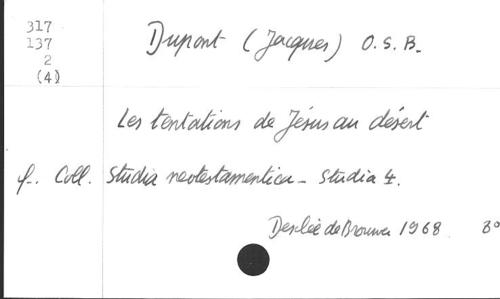 317
137
2
(4)
Dupont (Jacques) O.S.B.
Les tentations de Jésus au désert
f. Coll. Studia neotestamentica - Studia 4.
Desclée de Brouwer 1968. 8°